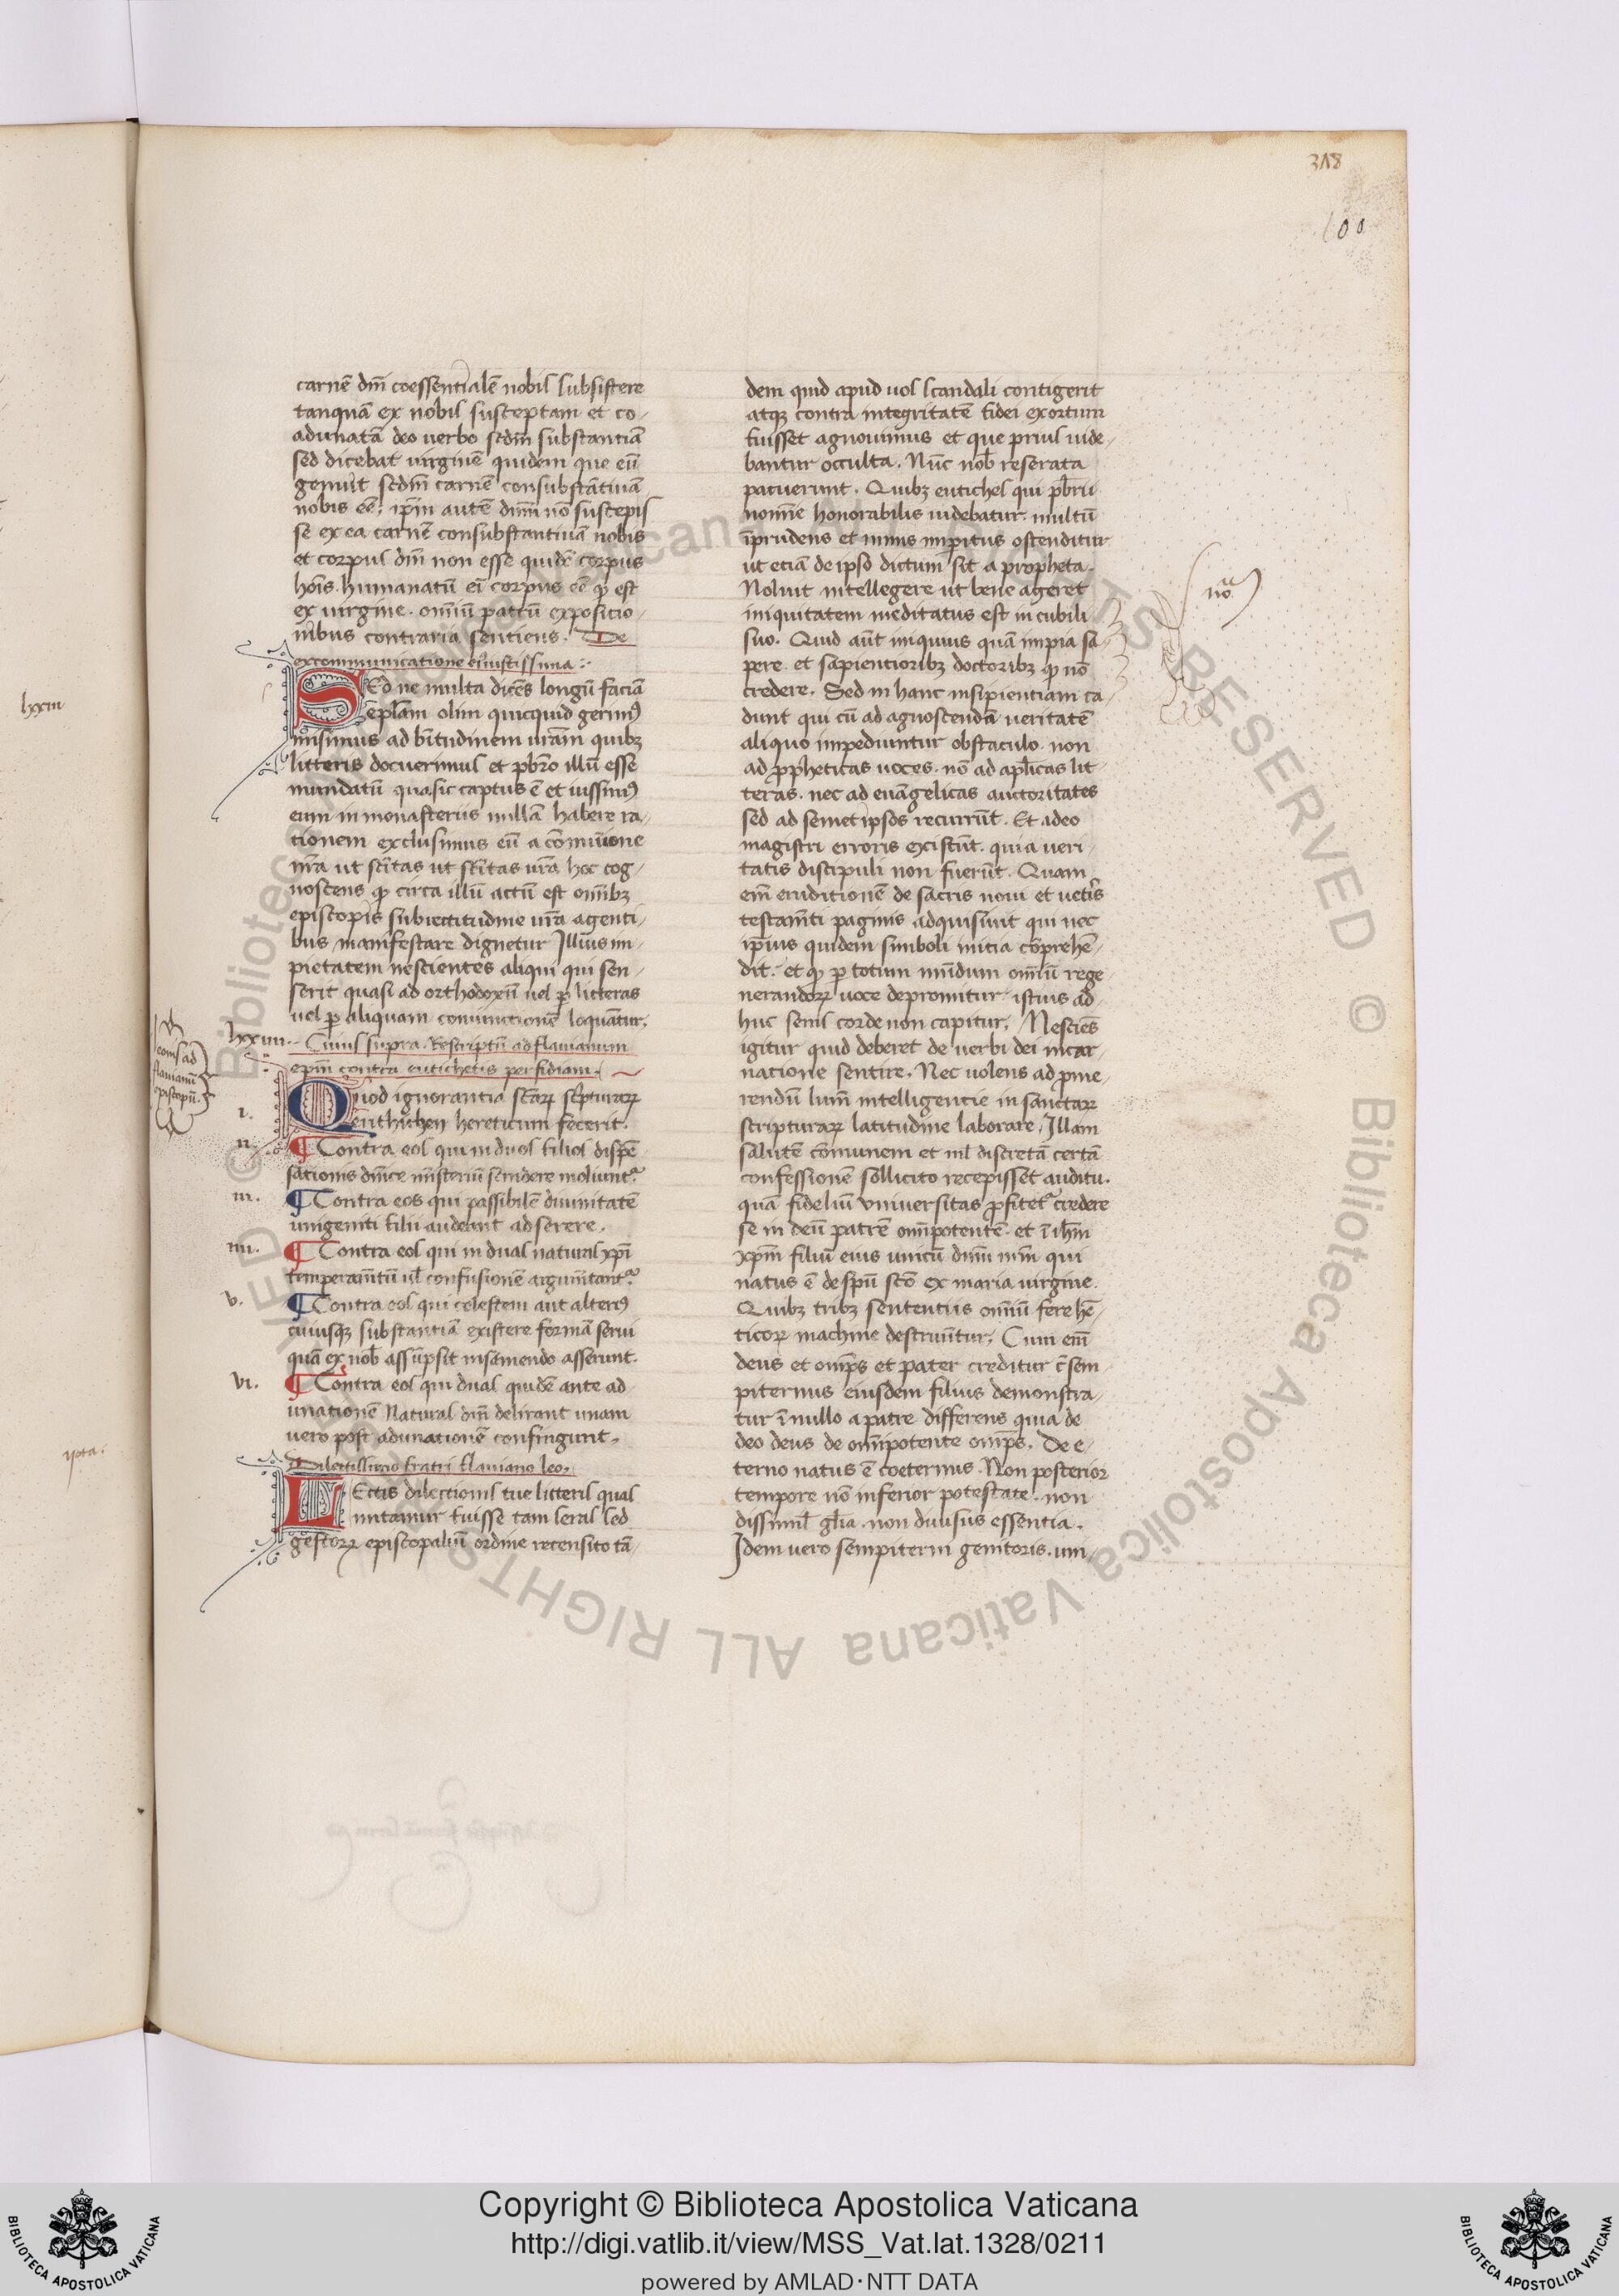 318
100
carnē dn̄i coessentialē nobis subsistere
tanquā ex nobis susceptam et co-
adunatā deo uerbo scdm̄ substantiā
sed dicebat uirginē quidem que eū
genuit scdm̄ carnē consubstātiuā
nobis eē, ip̄m autē dn̄m nō suscepis
se ex ea carnē consubstantiuā nobis
et corpus dn̄i non esse quidē corpus
hoīs. humanatū ei corpus eē qd̄ est
ex uirgine. omniū patrū expositio-
nibus contraria sentiens. De
excommunicatione ei iustissima :·
SEd ne multa dicēs longū faciā
ep̄lam olim quicquid gerimꝰ
misimus ad btitudinem ur̄am quibꝫ
litteris docuerimus et pbr̄o illū esse
nundatū quasic captus ē et iussimꝰ
eum in monasteriis nullā habere ra-
tionem exclusimus eū a comunione
nr̄a ut sc̄itas ut sc̄itas ur̄a hoc cog-
noscens qd̄ circa illū actū est omībꝫ
episcopis subiectitudine ur̄a agenti-
bus manifestare dignetur Illius im-
pietatem nescientes aliqui qui sen-
serit quasi ad orthodoxū uel ꝑ litteras
uel ꝑ aliquam coniunctionē loquātur.
lxxiiii. Cuius supra. Rescriptū ad flauianum
epm̄ contra eutichetis perfidiam.
consꝰ ad
flauianū
episcopū.
i. Quod ignorantia sc̄arꝝ sc̄pturarꝝ
euthichen hereticum fecerit.
ii. ¶ Contra eos qui in duos filios dispē
sationis dn̄ice mīsteriū scindere moliunt᷑.
iii. ¶ Contra eos qui passibilē diuinitatē
unigeniti filii audeant adserere.
iiii. ¶ Contra eos qui in duas naturas xp̄i
temperam̄tū ul̄ confusionē argum̄tant᷑.
v. ¶ Contra eos qui celestem aut alterꝰ
cuiusqꝫ substantiā existere formā serui
quā ex nob̄ assūpsit insaniendo asserunt.
vi. ¶ Contra eos qui duas quidē ante ad
unationē naturas dn̄i delirant unam
uero post adunationē confingunt.
Dilectissimo fratri flauiano leo.
LEctis dilectionis tue litteris quas
miramur fuisse tam seras sed
gestorꝝ episcopaliū ordine recensito tā-
dem quid apud uos scandali contigerit
atqꝫ contra integritatē fidei exortum
fuisset agnouimus et que prius uide-
bantur occulta. Nūc nob̄ reserata
patuerunt. Quibꝫ eutiches qui pbr̄ii
nomīe honorabilis uidebatur. multū
īprudens et nimis imperitus ostenditur
ut etiā de ipso dictum sit a propheta.
Noluit intellegere ut bene ageret
iniquitatem meditatus est in cubili
suo. Quid aūt iniquius quā impia sa-
pere. et sapientioribꝫ doctoribꝫ qꝫ nō
credere. Sed in hanc insipientiam ca-
dunt qui cū ad agnoscendā ueritatē
aliquo impediuntur obstaculo. non
ad ꝓpheticas uoces. nō ad apl̄icas lit
teras. nec ad euāgelicas auctoritates
sed ad semet ipsos recurrūt. Et adeo
magistri erroris existūt. quia ueri-
tatis discipuli non fuerūt. Quam
em̄ eruditionē de sacris noui et uetīs
testam̄ti paginis adquisiuit qui nec
ip̄ius quidem simboli initia cōprehē-
dit. et qd̄ ꝑ totum mūdum omniū rege-
nerandorꝝ uoce depromitur. istius ad-
huc senis corde non capitur. Nesciēs
igitur quid deberet de uerbi dei incar-
natione sentire. Nec uolens ad ꝓme-
rendū lum̄ intelligentie in sanctarꝝ
scripturarꝝ latitudine laborare. Illam
salutē comunem et in discretā certā
confessionē sollicito recepisset auditu.
quā fideliū vniuersitas ꝓfitet᷑ credere
se in deū patrē omīpotentē. et ī ihm̄
xpm̄ filiū eius unicū dnm̄ nr̄m. qui
natus ē de spū sc̄o ex maria uirgine.
Quibꝫ tribꝫ sententiis omniū fere hē-
ticorꝝ machine destruūtur. Cum em̄
deus et omps̄ et pater creditur c̄sem-
piternus eiusdem filius demonstra-
tur ī nullo a patre differens quia de
deo deus de omīpotente omps̄. De e-
terno natus ē coeternus. Non posterior
tempore nō inferior potestate. non
dissimil̄ gl̄ia. non diuisus essentia.
Idem uero sempiterni genitoris. uni-
noᵃ
lxxiii
nota:
© Biblioteca Apostolica Vaticana ALL RIGHTS RESERVED
Copyright © Biblioteca Apostolica Vaticana
http://digi.vatlib.it/view/MSS_Vat.lat.1328/0211
powered by AMLAD·NTT DATA
BIBLIOTECA APOSTOLICA VATICANA
BIBLIOTECA APOSTOLICA VATICANA